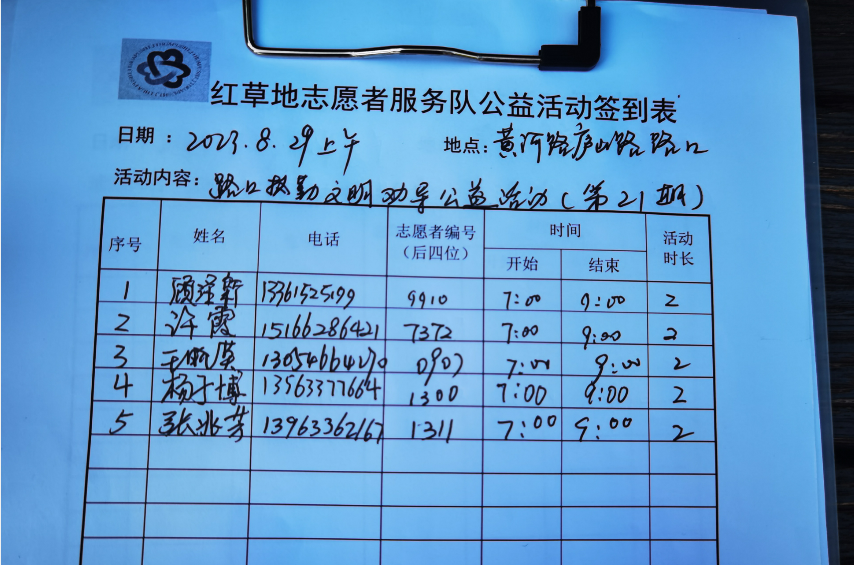 红草地志愿者服务队公益活动签到表
日期：2023.8.29上午 地点：黄河路庐山路路口
活动内容：路口执勤文明劝导公益活动(第21期)
序号 姓名 电话 志愿者编号（后四位） 时间 开始 结束 活动时长
1 顾泽新 13361525199 9910 7:00 9:00 2
2 许霞 15166286421 7372 7:00 9:00 2
3 13054664270 0907 7:00 9:00 2
4 杨于博 13563377664 1300 7:00 9:00 2
5 张兆芳 13963362167 1311 7:00 9:00 2